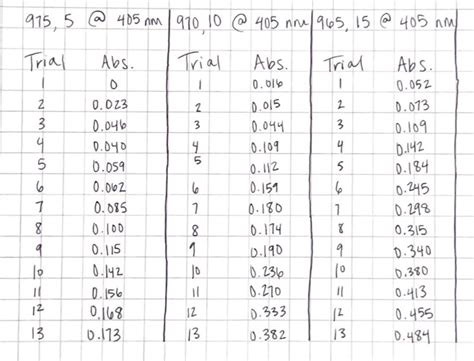 975, 5 @ 405 nm 970, 10 @ 405 nm 965, 15 @ 405 nm
Trial Abs. Trial Abs. Trial Abs.
1 0 1 0.016 1 0.052
2 0.023 2 0.015 2 0.073
3 0.046 3 0.044 3 0.109
4 0.040 4 0.109 4 0.142
5 0.059 5 0.112 5 0.184
6 0.062 6 0.159 6 0.245
7 0.085 7 0.180 7 0.298
8 0.100 8 0.174 8 0.315
9 0.115 9 0.190 9 0.340
10 0.142 10 0.236 10 0.380
11 0.156 11 0.270 11 0.413
12 0.168 12 0.333 12 0.455
13 0.173 13 0.382 13 0.484